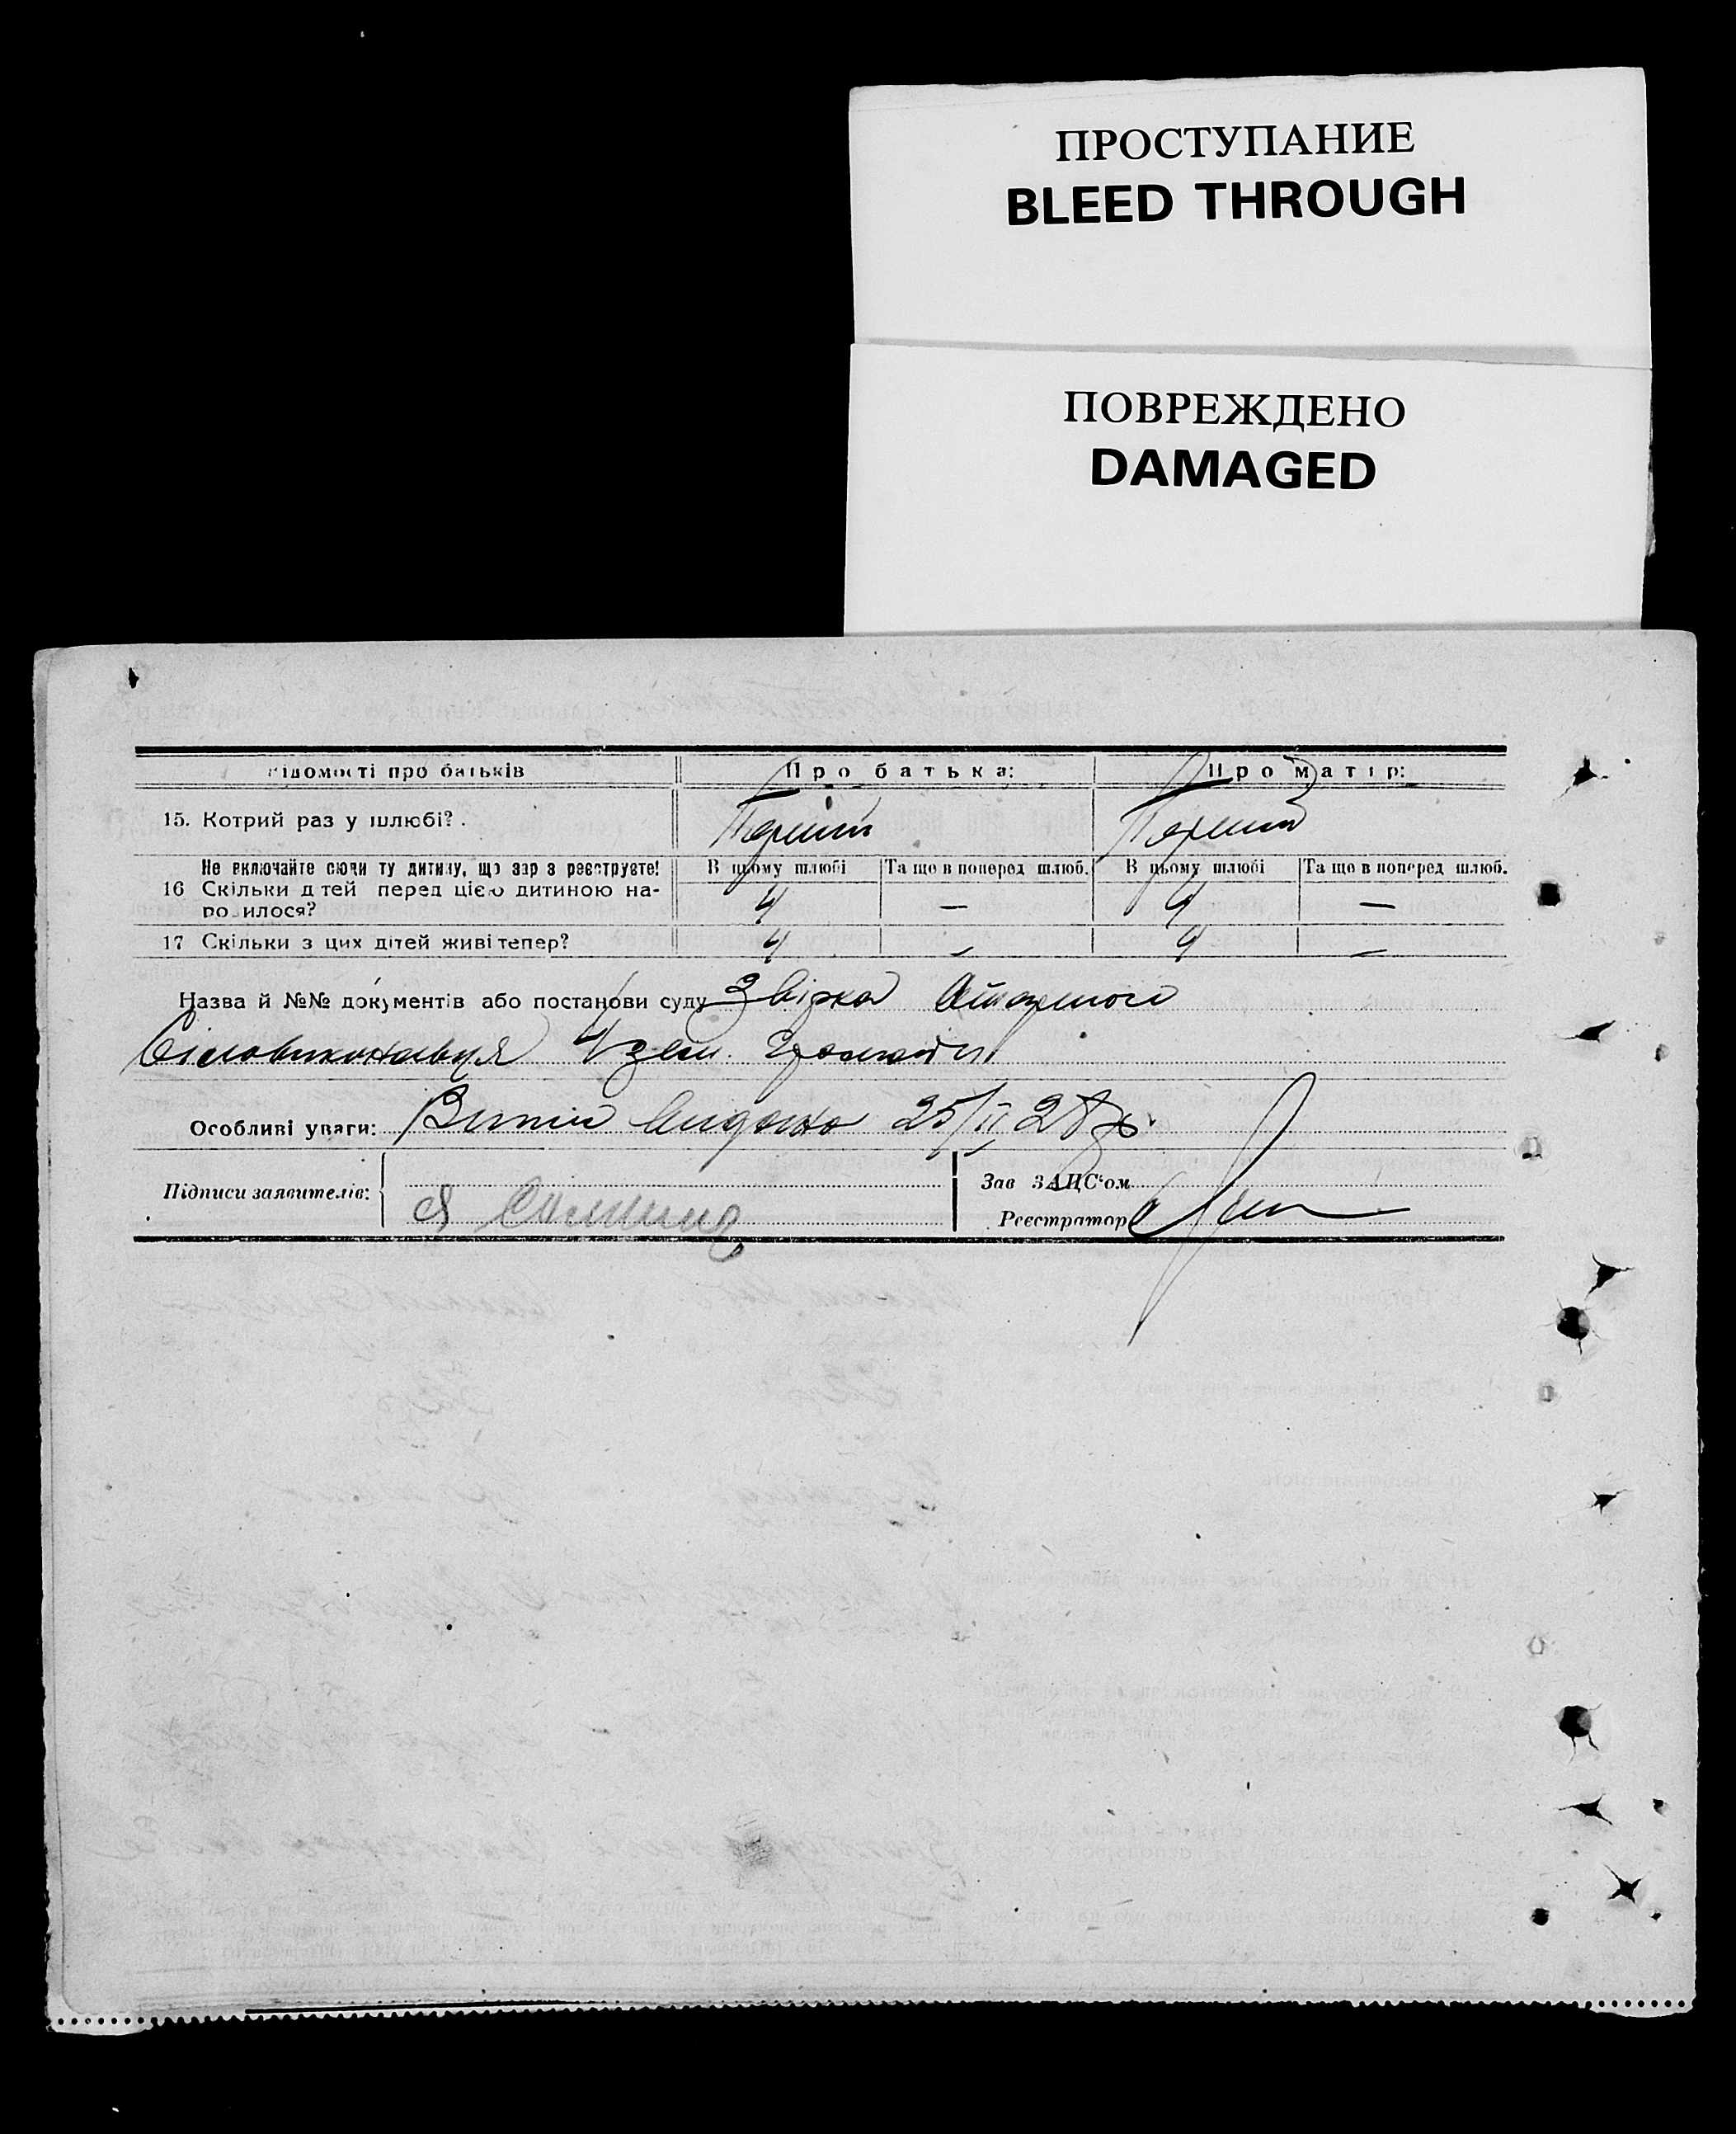 ПРОСТУПАНИЕ
BLEED THROUGH
ПОВРЕЖДЕНО
DAMAGED
відомості про батьків Про батька: Про матір:
15. Котрий раз у шлюбі? . Перший Перший
Не включайте сюди ту дитину, що зар з реєструєте! В цьому шлюбі Та що в поперед шлюб. В цьому шлюбі Та що в поперед шлюб.
16 Скільки д тей перед цією дитиною на-
ро илося? 4 — 4 —
17 Скільки з цих дітей живі тепер? 4 — 4 —
Назва й №№ документів або постанови суду Звірка
Сільвиконавця 4 зем. громади
Особливі уваги: Витяг видано 25/II 28 р.
Підписи заявителів: Зав ЗАЦС'ом
Реєстратор